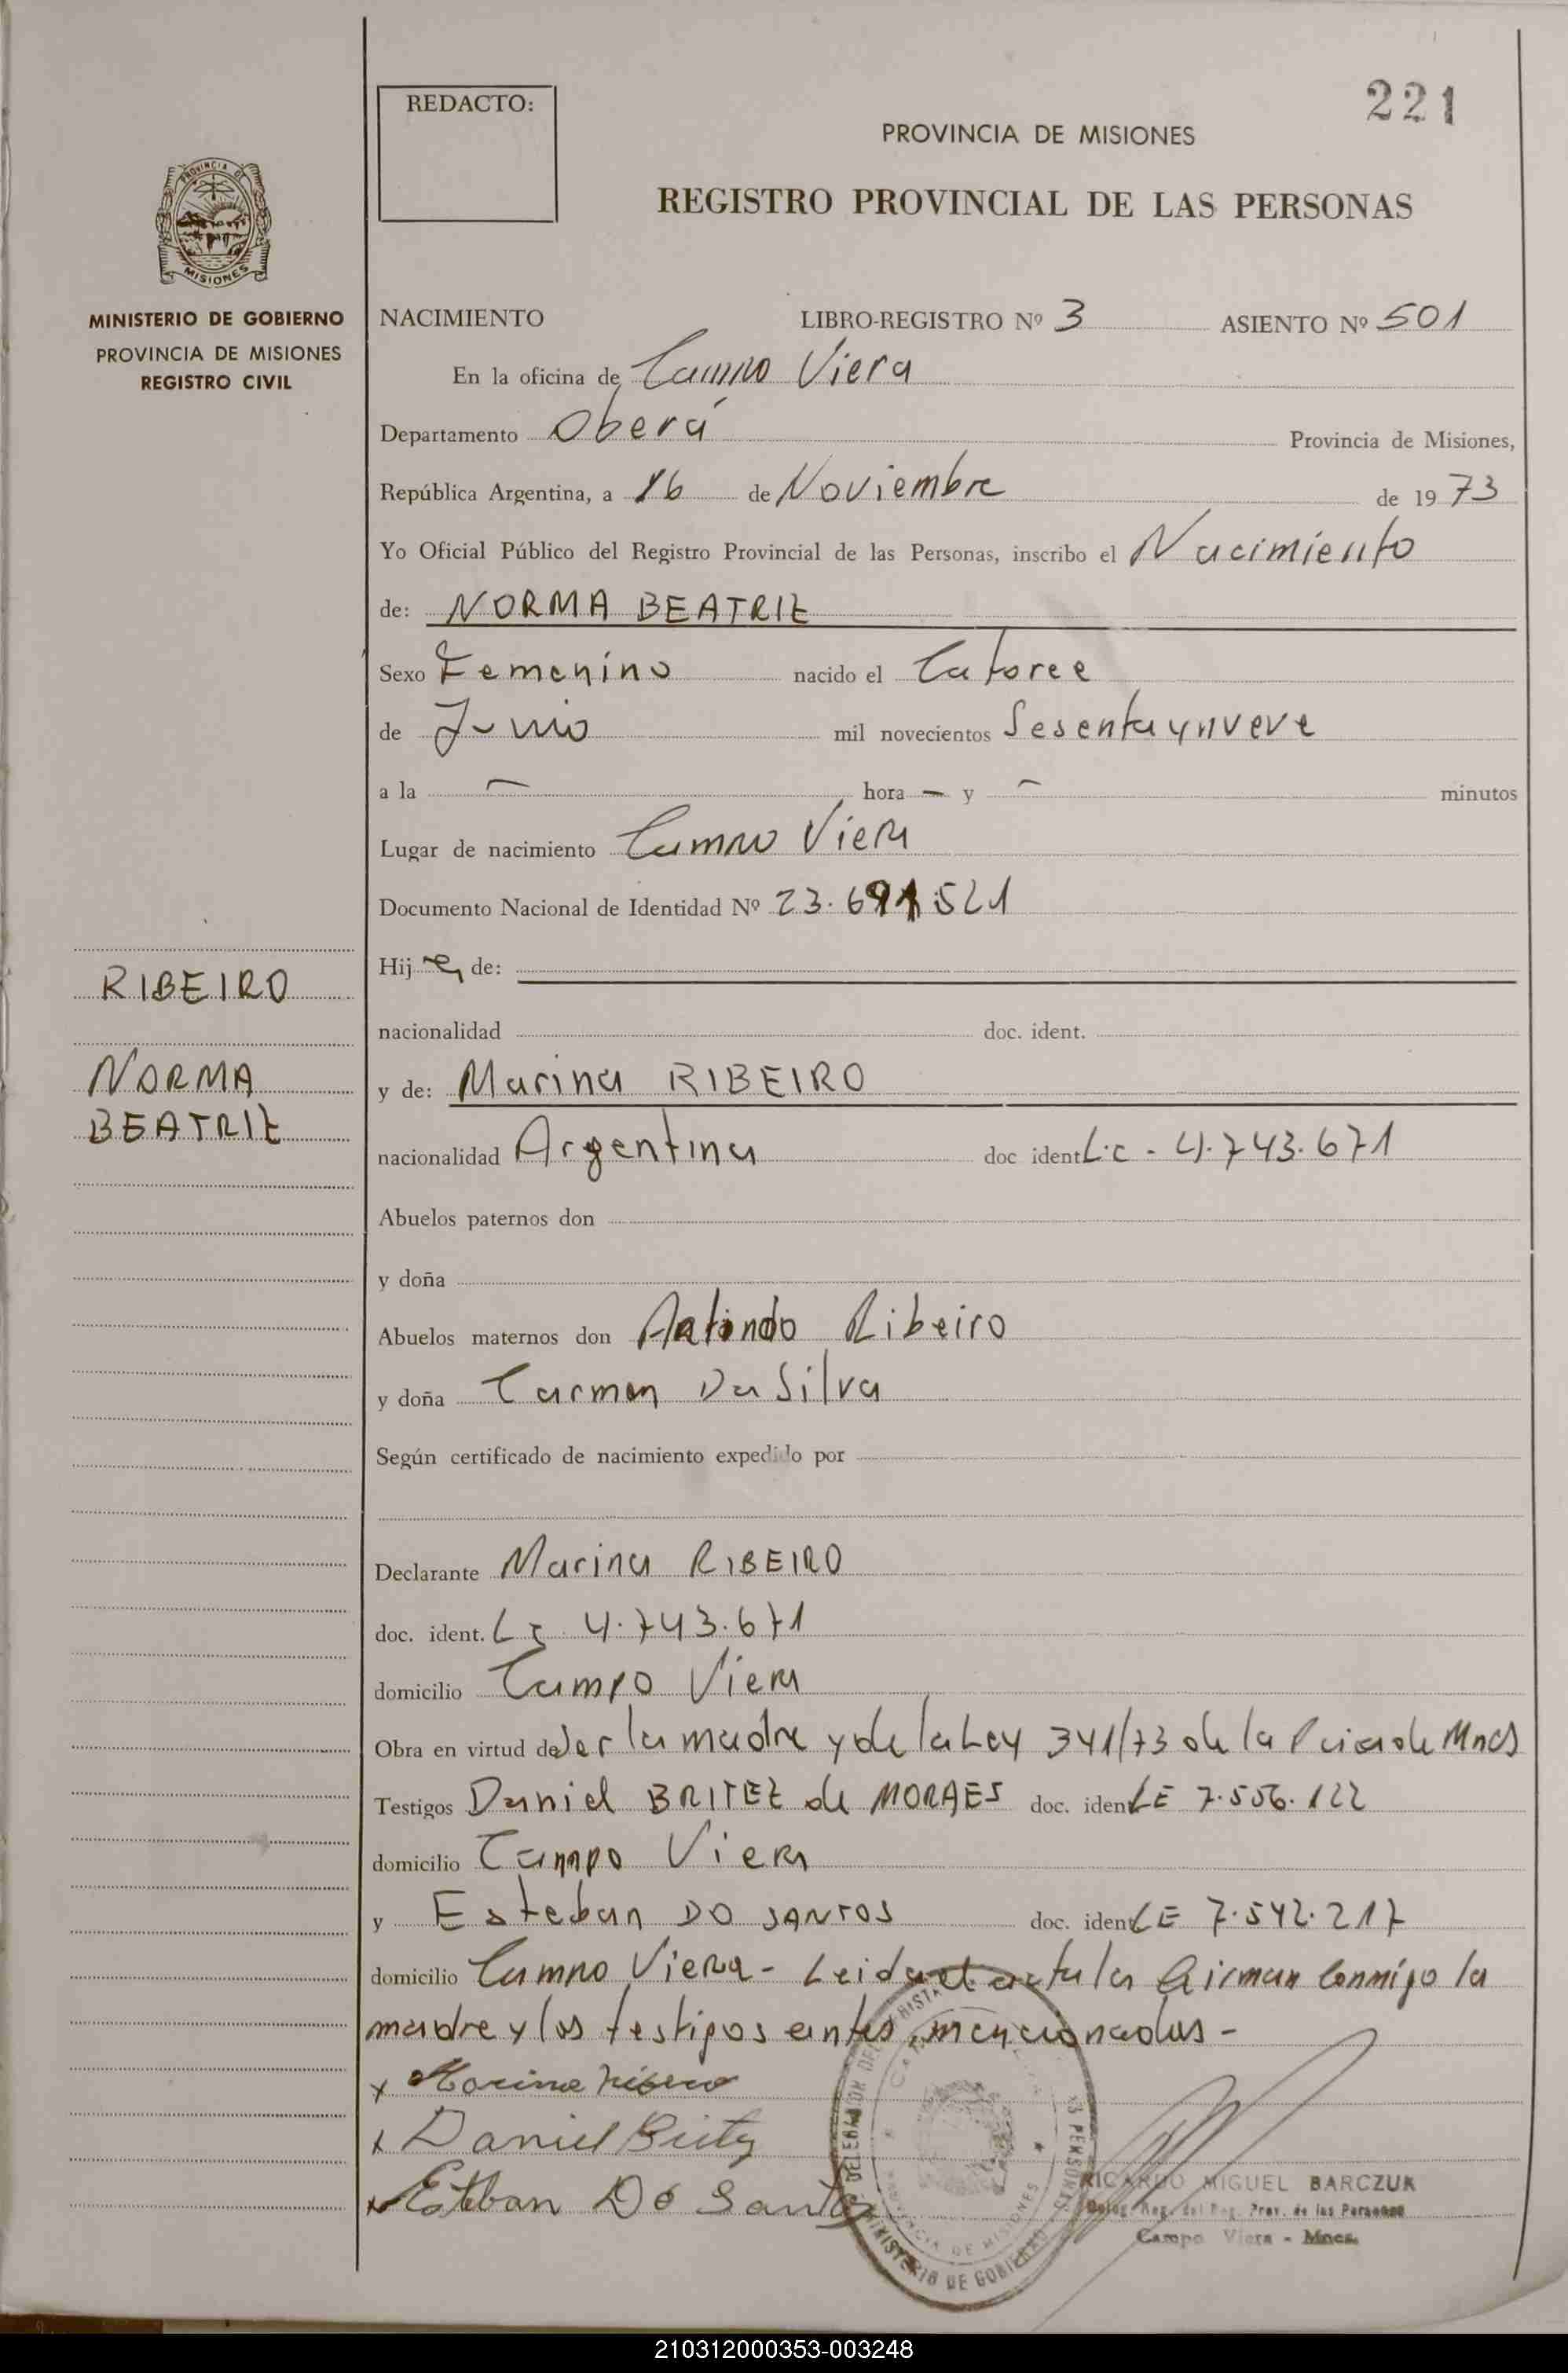 221
REDACTO:
PROVINCIA DE MISIONES
REGISTRO PROVINCIAL DE LAS PERSONAS
PROVINCIA DE
MISIONES
MINISTERIO DE GOBIERNO
PROVINCIA DE MISIONES
REGISTRO CIVIL
NACIMIENTO LIBRO-REGISTRO Nº 3 ASIENTO Nº 501
En la oficina de Campo Viera
Departamento Oberá Provincia de Misiones,
República Argentina, a 16 de Noviembre de 1973
Yo Oficial Público del Registro Provincial de las Personas, inscribo el Nacimiento
de: NORMA BEATRIZ
Sexo Femenino nacido el Catorce
de Junio mil novecientos Sesenta y nueve
a la — hora — y — minutos
Lugar de nacimiento Campo Viera
Documento Nacional de Identidad Nº 23.691.521
Hija de:
nacionalidad doc. ident.
RIBEIRO
NORMA
BEATRIZ
y de: Marina RIBEIRO
nacionalidad Argentina doc ident L.C - 4.743.671
Abuelos paternos don
y doña
Abuelos maternos don Ribeiro
y doña Carmen Da Silva
Según certificado de nacimiento expedido por
Declarante Marina RIBEIRO
doc. ident. LC 4.743.671
domicilio Campo Viera
Obra en virtud de Ser la madre y de la Ley 341/73 de la Pcia de Mnes
Testigos Daniel BRITEZ de MORAES doc. ident LE 7.556.122
domicilio Campo Viera
y Esteban DO SANTOS doc. ident LE 7.542.217
domicilio Campo Viera - Leida el acta la firman Conmigo la
madre y los testigos antes mencionados -
x Marina Ribeiro
x Daniel Britez
x Esteban Do Santos
MINISTERIO DE GOBIERNO
PROVINCIA DE MISIONES
RICARDO MIGUEL BARCZUK
Deleg. Reg. del Reg. Prov. de las Personas
Campo Viera - Mnes.
210312000353-003248